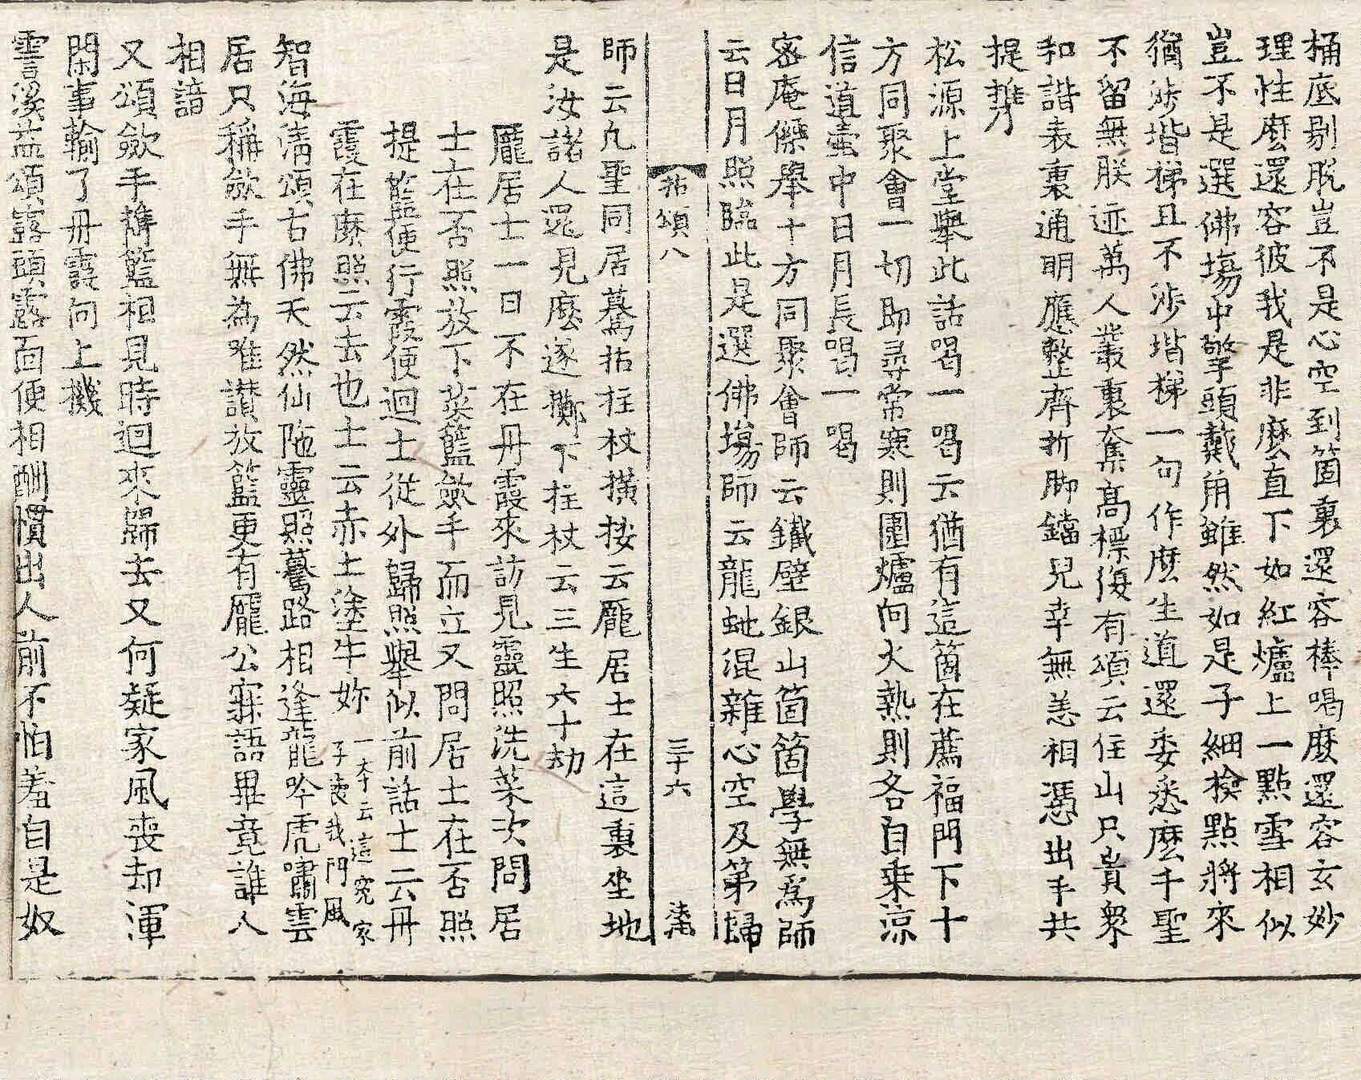 桶底剔脫豈不是心空到箇裏還容棒喝麽還容玄妙
理性麽還容彼我是非麽直下如紅爐上一點雪相似
豈不是選佛場中擎頭戴角雖然如是子細檢點將來
猶涉堦梯且不涉堦梯一句作麽生道還委悉麽千聖
不留無朕迹萬人叢裏奪高標復有頌云住山只貴衆
和諧表裏通明應整齊折脚鐺兒幸無恙相憑出手共
提携
松源上堂擧此話喝一喝云猶有這箇在薦福門下十
方同聚會一切即尋常寒則圍爐向火熱則各自乘凉
信道壷中日月長喝一喝
密庵傑擧十方同聚會師云鐵壁銀山箇箇學無爲師
云日月照臨此是選佛場師云龍虵混雜心空及第歸
拈頌八 三十六
師云凡聖同居驀拈柱杖橫按云龐居士在這裏坐地
是汝諸人還見麽遂擲下柱杖云三生六十劫
龐居士一日不在丹霞來訪見靈照洗菜次問居
士在否照放下菜籃斂手而立又問居士在否照
提籃便行霞便迴士從外歸照擧似前話士云丹
霞在麽照云去也士云赤土塗牛妳 一本云這寃家
子喪我門風
智海淸頌古佛天然仙陁靈照驀路相逢龍吟虎嘯雲
居只稱斂手無爲唯讃放籃更有龐公寐語畢竟誰人
相諳
又頌斂手携籃相見時迴來歸去又何疑家風喪却渾
閑事輸了丹霞向上機
雲溪益頌露頭露面便相酬慣出人前不怕羞自是奴